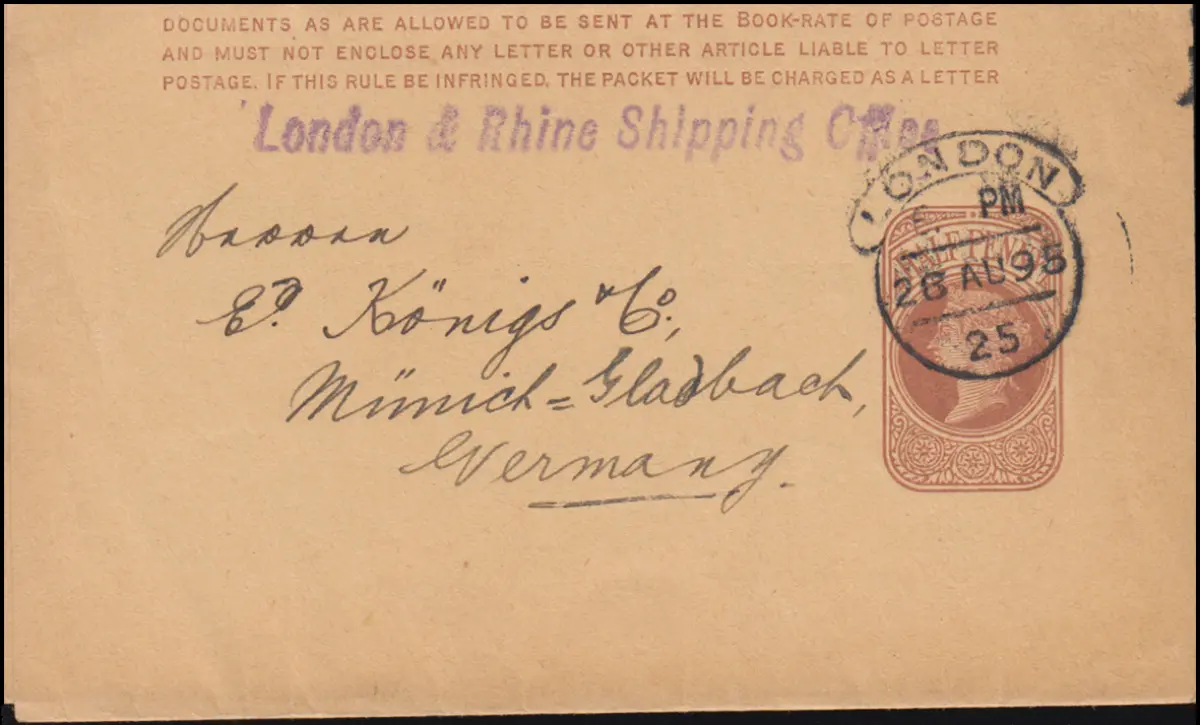 DOCUMENTS AS ARE ALLOWED TO BE SENT AT THE BOOK-RATE OF POSTAGE
AND MUST NOT ENCLOSE ANY LETTER OR OTHER ARTICLE LIABLE TO LETTER
POSTAGE. IF THIS RULE BE INFRINGED, THE PACKET WILL BE CHARGED AS A LETTER
London & Rhine Shipping Office
LONDON
PM
HALFPENNY
26 AU 95
25
Herren
Ed. Königs & Co.,
Münich=Gladbach,
Germany.